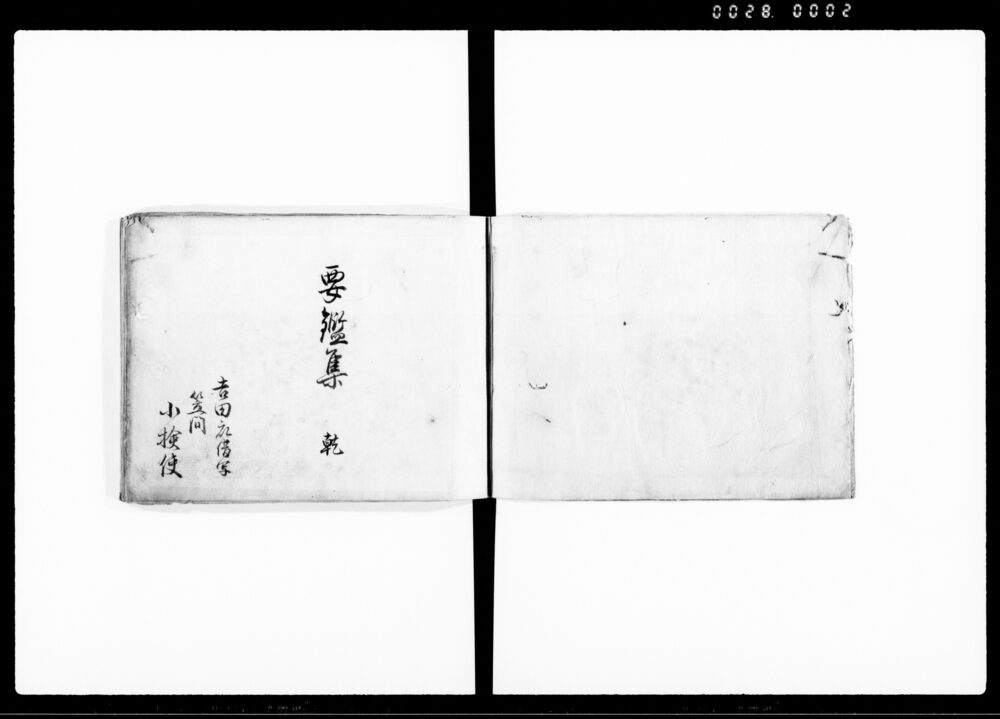 0028. 0002
要鑑集 乾
吉田 借写
笠間
小検使